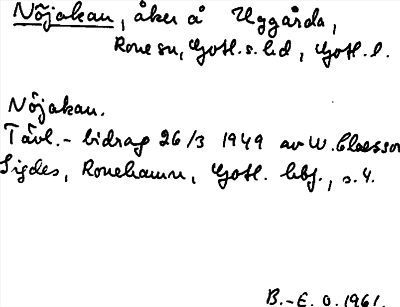 Nöjakan, åker å Uggårda,
Rone sn, Gotl. s. hd, Gotl. l.
Nöjakan.
Tävl.-bidrag 26/3 1949 av W. Claesson
Sigdes, Ronehamn, Gotl. hbf., s. 4.
B.-E. O. 1961.